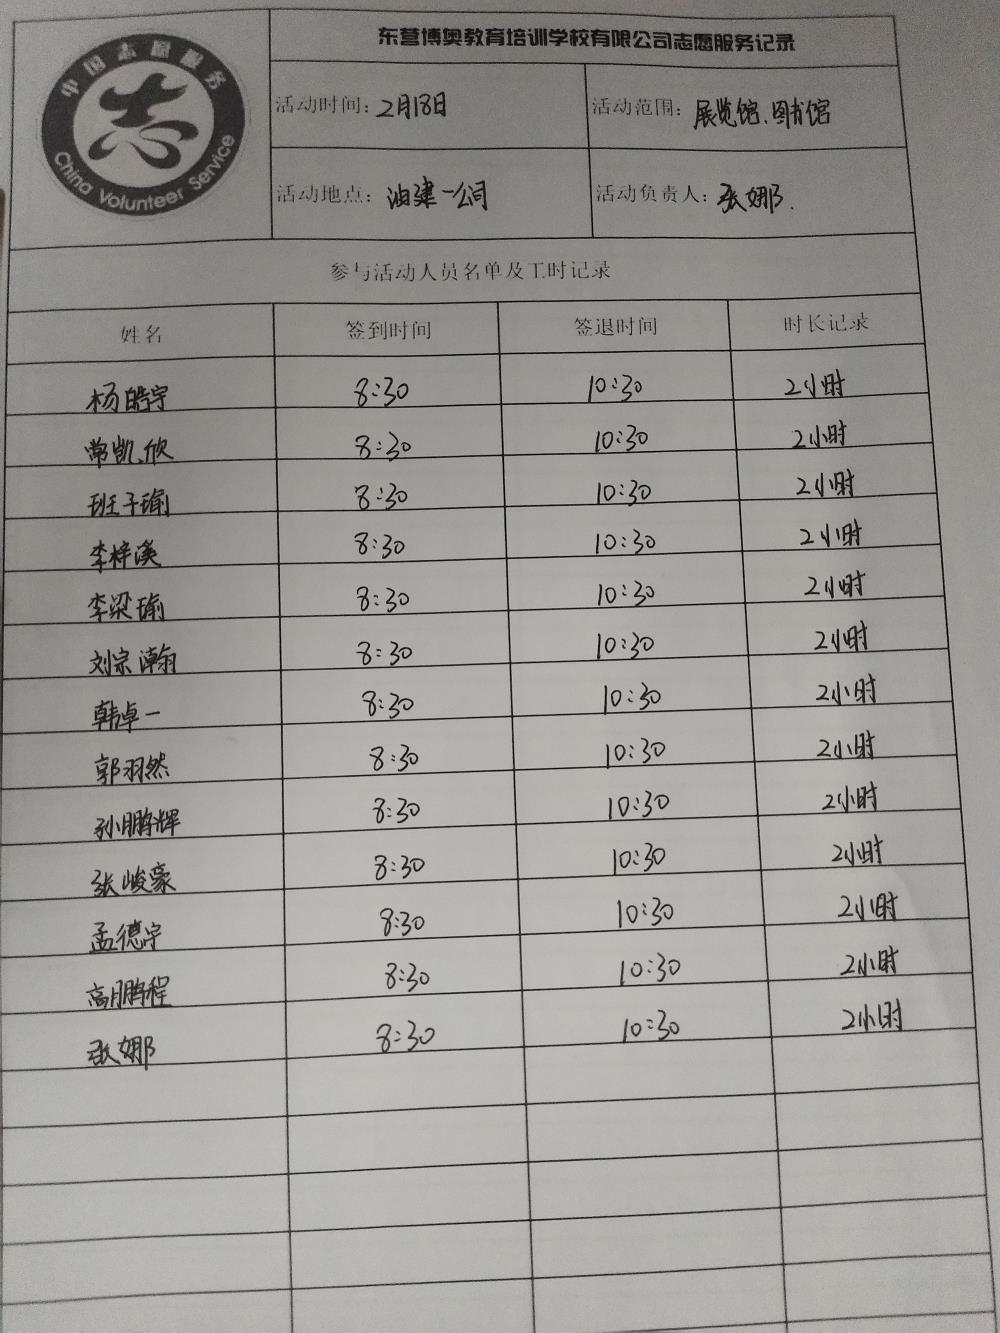 中国志愿服务
志
China Volunteer Service
东营博奥教育培训学校有限公司志愿服务记录
活动时间：2月18日 活动范围：展览馆、图书馆
活动地点：油建一公司 活动负责人：张娜.
参与活动人员名单及工时记录
姓名 签到时间 签退时间 时长记录
杨皓宇 8:30 10:30 2小时
常凯欣 8:30 10:30 2小时
班子瑜 8:30 10:30 2小时
李梓溪 8:30 10:30 2小时
李梁瑜 8:30 10:30 2小时
刘宗瀚 8:30 10:30 2小时
韩卓一 8:30 10:30 2小时
郭羽然 8:30 10:30 2小时
孙鹏辉 8:30 10:30 2小时
张峻豪 8:30 10:30 2小时
孟德宇 8:30 10:30 2小时
高鹏程 8:30 10:30 2小时
张娜 8:30 10:30 2小时